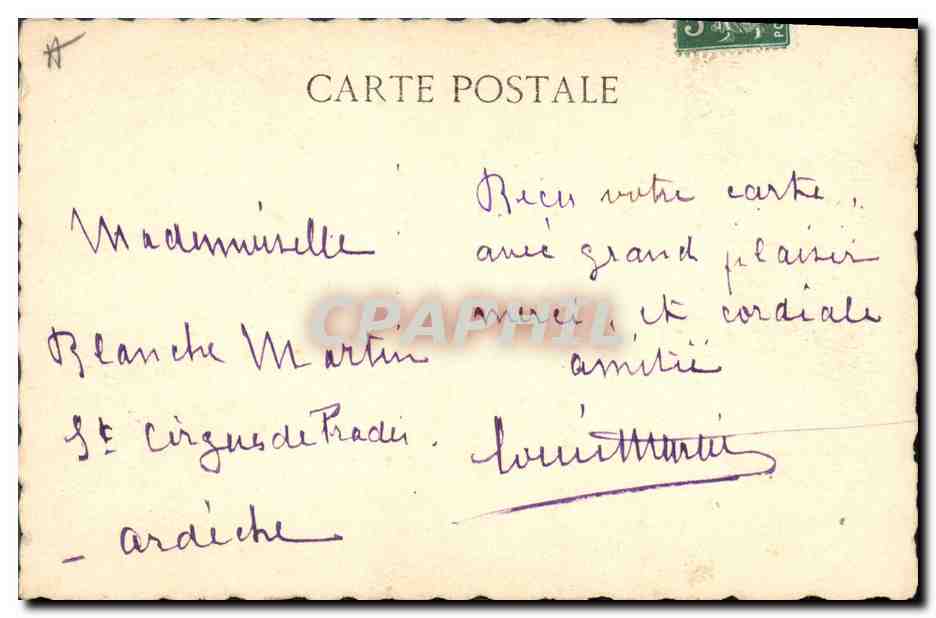 5
CARTE POSTALE
Mademoiselle
Blanche Martin
St Cirgues de Prades.
- ardèche
Reçu votre carte,
avec grand plaisir
merci, et cordiale
amitié
Louis Martin
CPAPHIL